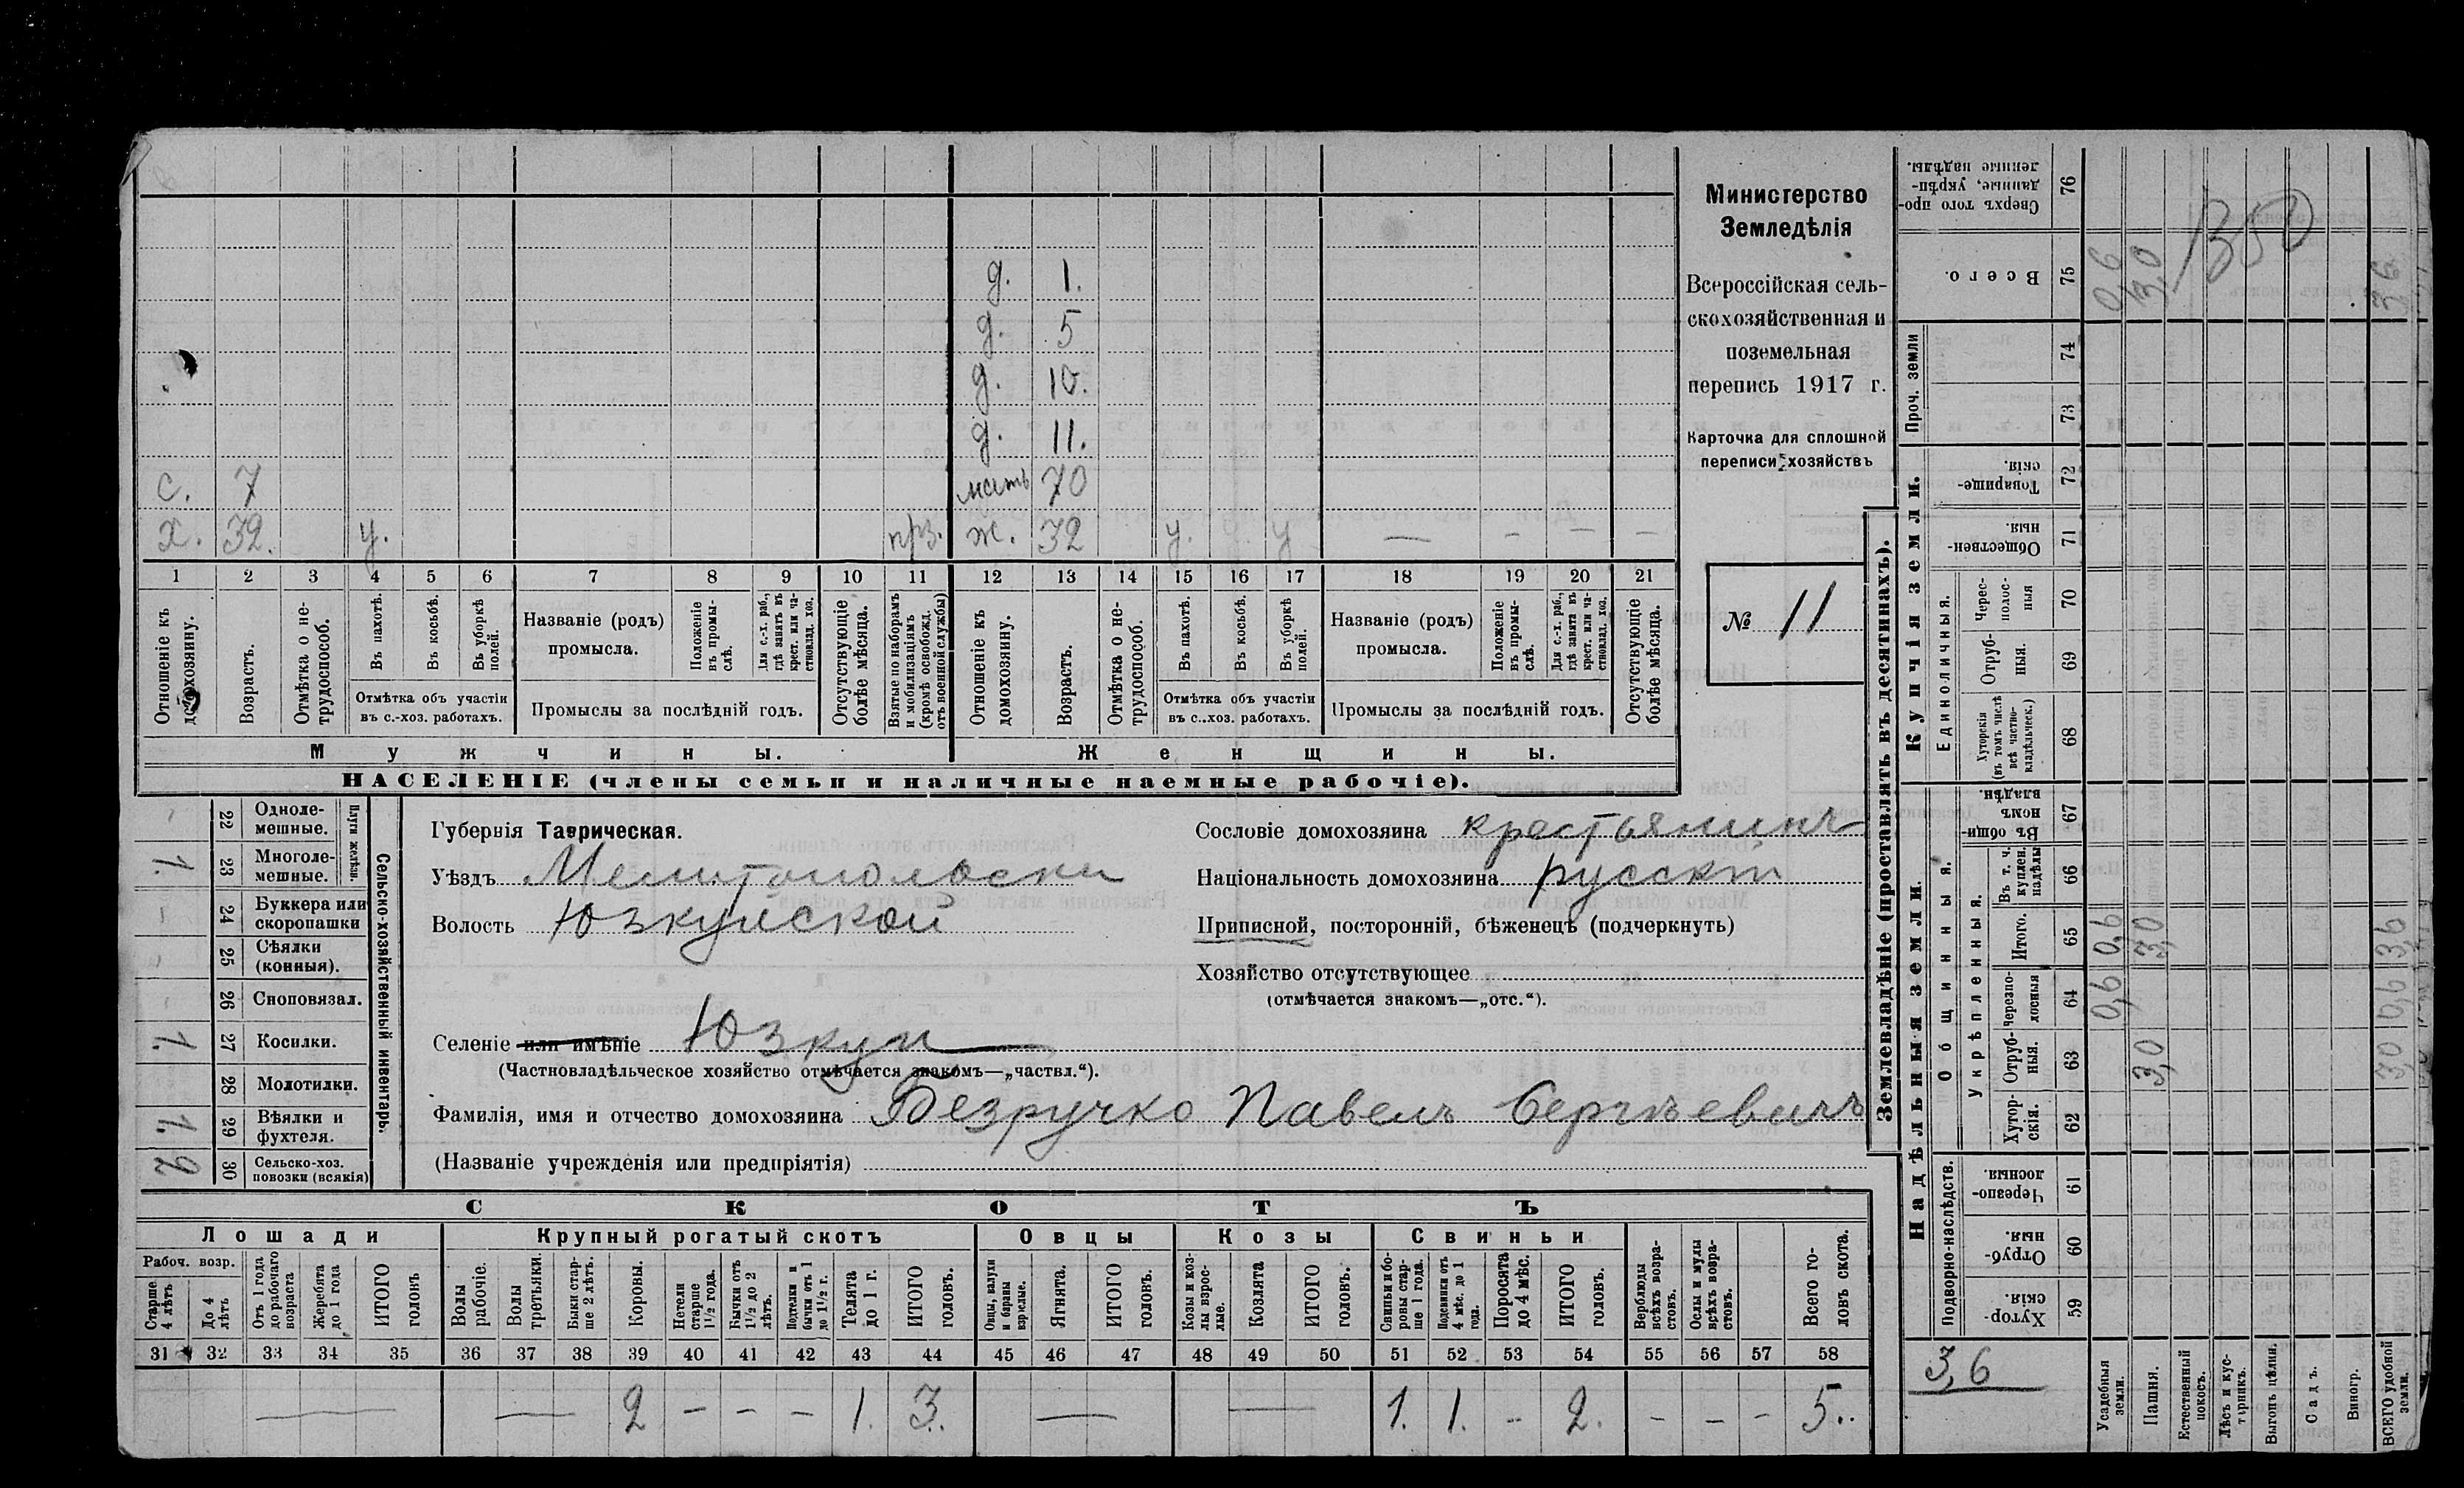 Министерство
Земледѣлія
Всероссійская сель-
скохозяйственная и
поземельная
перепись 1917 г.
Карточка для сплошной
переписи хозяйствъ
№ 11
д. 1.
д. 5
д. 10.
д. 11.
с. 7 мать 70
х. 32. у. прз. ж. 32 у. у — - — -
1 2 3 4 5 6 7 8 9 10 11 12 13 14 15 16 17 18 19 20 21
Отношеніе къ домохозяину.
Возрастъ.
Отмѣтка о не-
трудоспособ.
Въ пахотѣ.
Въ косьбѣ.
Въ уборкѣ
полей.
Отмѣтка объ участіи
въ с.-хоз. работахъ.
Названіе (родъ)
промысла.
Положеніе
въ промы-
слѣ.
Для с.-х. раб.,
гдѣ занятъ въ
крест. или ча-
стновлад. хоз.
Промыслы за послѣдній годъ.
Отсутствующіе
болѣе мѣсяца.
Взятые по наборамъ
и мобилизаціямъ
(кромѣ освобожд.
отъ военной службы)
Отношеніе къ
домохозяину.
Возрастъ.
Отмѣтка о не-
трудоспособ.
Въ пахотѣ.
Въ косьбѣ.
Въ уборкѣ
полей.
Отмѣтка объ участіи
въ с.-хоз. работахъ.
Названіе (родъ)
промысла.
Положеніе
въ промы-
слѣ.
Для с.-х. раб.,
гдѣ занята въ
крест. или ча-
стновлад. хоз.
Промыслы за послѣдній годъ.
Отсутствующіе
болѣе мѣсяца.
Мужчины. Женщины.
НАСЕЛЕНІЕ (члены семьи и наличные наемные рабочіе).
Сельско-хозяйственный инвентарь.
Плуги желѣзн.
22 Одноле-
мешные.
1. 23 Многоле-
мешные.
24 Буккера или
скоропашки
25 Сѣялки
(конныя).
26 Сноповязал.
1. 27 Косилки.
28 Молотилки.
1. 29 Вѣялки и
фухтеля.
2 30 Сельско-хоз.
повозки (всякія)
Губернія Таврическая.
Уѣздъ Мелитопольскій
Волость Юзкуйской
Селеніе или имѣніе Юзкуи
(Частновладѣльческое хозяйство отмѣчается знакомъ—„частвл.“).
Фамилія, имя и отчество домохозяина Безручко Павелъ Сергѣевичъ
(Названіе учрежденія или предпріятія)
Сословіе домохозяина крестьянинъ
Національность домохозяина русскій
Приписной, посторонній, бѣженецъ (подчеркнуть)
Хозяйство отсутствующее
(отмѣчается знакомъ—„отс.“).
СКОТЪ
Лошади Крупный рогатый скотъ Овцы Козы Свиньи
Рабоч. возр.
Старше
4 лѣтъ
До 4
лѣтъ
Отъ 1 года
до рабочаго
возраста
Жеребята
до 1 года
ИТОГО
головъ
Волы
рабочіе.
Волы
третьяки.
Быки стар-
ше 2 лѣтъ.
Коровы.
Нетели
старше
1½ года.
Бычки отъ
1½ до 2
лѣтъ.
Подтелки и
бычки отъ 1
до 1½ г.
Телята
до 1 г.
ИТОГО
головъ.
Овцы, валухи
и бараны
взрослые.
Ягнята.
ИТОГО
головъ.
Козы и коз-
лы взрос-
лые.
Козлята
ИТОГО
головъ.
Свиньи и бо-
ровы стар-
ше 1 года.
Подсвинки отъ
4 мѣс. до 1
года.
Поросята
до 4 мѣс.
ИТОГО
головъ.
Верблюды
всѣхъ возра-
стовъ.
Ослы и мулы
всѣхъ возра-
стовъ.
Всего го-
ловъ скота.
31 32 33 34 35 36 37 38 39 40 41 42 43 44 45 46 47 48 49 50 51 52 53 54 55 56 57 58
— — 2 - - - 1. 3. — — 1. 1. - 2. - - - 5.
Землевладѣніе (проставлять въ десятинахъ).
Надѣльныя земли. Купчія земли. Проч. земли
Подворно-наслѣдств. Общинныя. Укрѣпленныя. Единоличныя.
Хутор-
скія. 59
Отруб-
ныя. 60
Черезпо-
лосныя 61
Хутор-
скія. 62
Отруб-
ныя. 63
Черезпо-
лосныя 64
Итого. 65
Въ т. ч.
куплен.
надѣлы 66
Въ общин-
номъ
владѣн. 67
Хуторскія
(въ томъ числѣ
всѣ частно-
владѣльческ.) 68
Отруб-
ныя. 69
Черес-
полос-
ныя 70
Обществен-
ныя 71
Товарище-
скія. 72
73
74
Всего. 75
Сверхъ того про-
данные, укрѣп-
ленные надѣлы. 76
3,6
Усадебныя
земли. 0,6 0,6 0,6
Пашня. 3,0 3,0 3,0
Естественный
покосъ.
Лѣсъ и кус-
тарникъ.
Выгонъ цѣлин.
Садъ.
Виногр.
ВСЕГО удобной
земли. 3,0 0,6 3,6 3,6
350